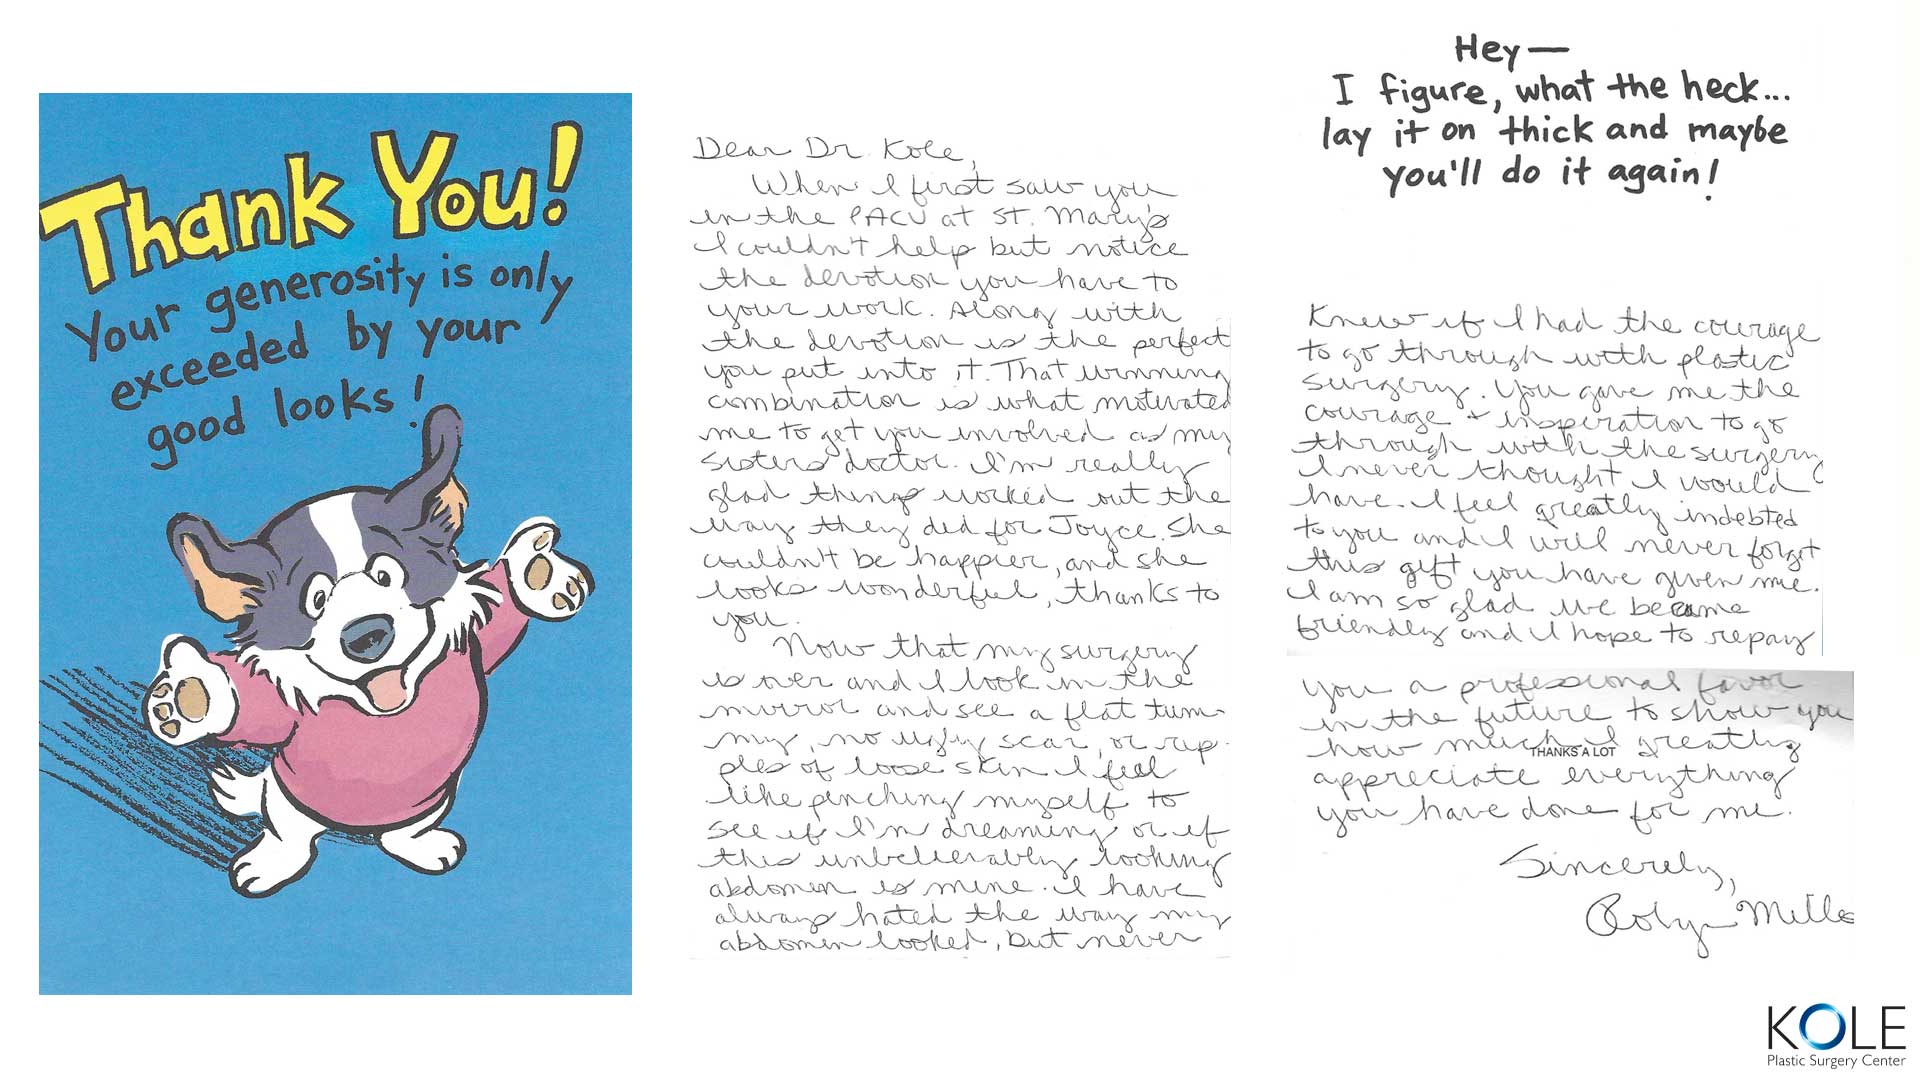 Thank You!
Your generosity is only
exceeded by your
good looks!
Dear Dr. Kole,
When I first saw you
in the PACU at St. Mary's
I couldn't help but notice
the devotion you have to
your work. Along with
the devotion is the perfect
you put into it. That winning
combination is what motivated
me to get you involved as my
sisters doctor. I'm really
glad things worked out the
way they did for Joyce. She
couldn't be happier, and she
looks wonderful, thanks to
you.
Now that my surgery
is over and I look in the
mirror and see a flat tum-
my, no ugly scar, or rip-
ples of loose skin I feel
like pinching myself to
see if I'm dreaming or if
this unbelievably looking
abdomen is mine. I have
always hated the way my
abdomen looked, but never
Hey—
I figure, what the heck...
lay it on thick and maybe
you'll do it again!
Knew if I had the courage
to go through with plastic
surgery. You gave me the
courage + insperation to go
through with the surgery
I never thought I would
have. I feel greatly indebted
to you and I will never forget
this gift you have given me.
I am so glad we became
friendly and I hope to repay
you a professional favor
in the future to show you
how much I greatly
THANKS A LOT
appreciate everything
you have done for me.
Sincerely,
Robyn Mills
KOLE
Plastic Surgery Center